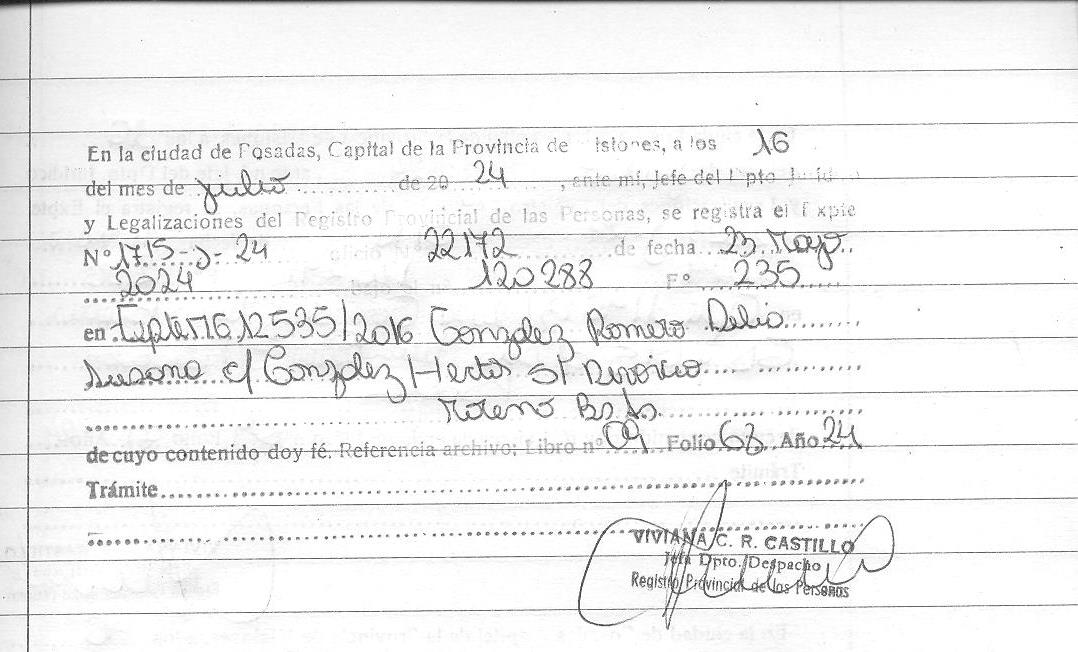 En la ciudad de Posadas, Capital de la Provincia de isiones, a los 16
del mes de julio de 20 24, ante mi, Jefe del Dpto Juríd
y Legalizaciones del Registro Provincial de las Personas, se registra el Expte
Nº 1715-J-24 oficio Nº 22172 de fecha 23 Mayo
2024 120288 Fº 235
en Expte MG 12535/2016 Gonzalez Romero Delia
Susana c/ Gonzalez Hector S/ Divorcio
Moreno Bs As
de cuyo contenido doy fé. Referencia archivo; Libro nº 09 Folio 63 Año 24
Trámite
VIVIANA C. R. CASTILLO
Jefa Dpto. Despacho
Registro Provincial de las Personas